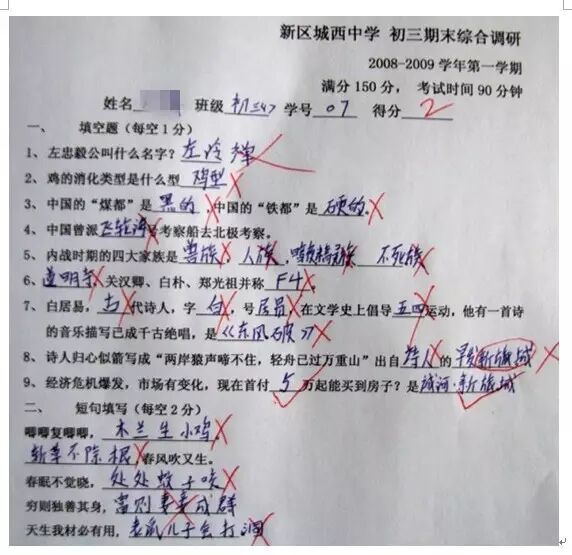 新区城西中学 初三期末综合调研
2008-2009 学年第一学期
满分 150 分， 考试时间 90 分钟
姓名 班级 初三47 学号 07 得分 2
一、 填空题（每空 1 分）
1、左忠毅公叫什么名字？左冷禅
2、鸡的消化类型是什么型 鸡型
3、中国的“煤都”是 黑的，中国的“铁都”是 硬的。
4、中国曾派 飞轮海 号考察船去北极考察。
5、内战时期的四大家族是 兽族、人族、暗夜精灵族 不死族
6、道明寺、关汉卿、白朴、郑光祖并称 F4。
7、白居易，古代诗人，字 白，号 居易，在文学史上倡导 五四 运动，他有一首诗
的音乐描写已成千古绝唱，是《东风破》
8、诗人归心似箭写成“两岸猿声啼不住，轻舟已过万重山”出自 诗人 的 早发新旅城
9、经济危机爆发，市场有变化，现在首付 5 万起能买到房子？是 域河·新旅城
二、 短句填写（每空 2 分）
唧唧复唧唧， 木兰生小鸡
斩草不除根 春风吹又生。
春眠不觉晓， 处处蚊子咬
穷则独善其身，富则妻妾成群
天生我材必有用，老鼠儿子会打洞